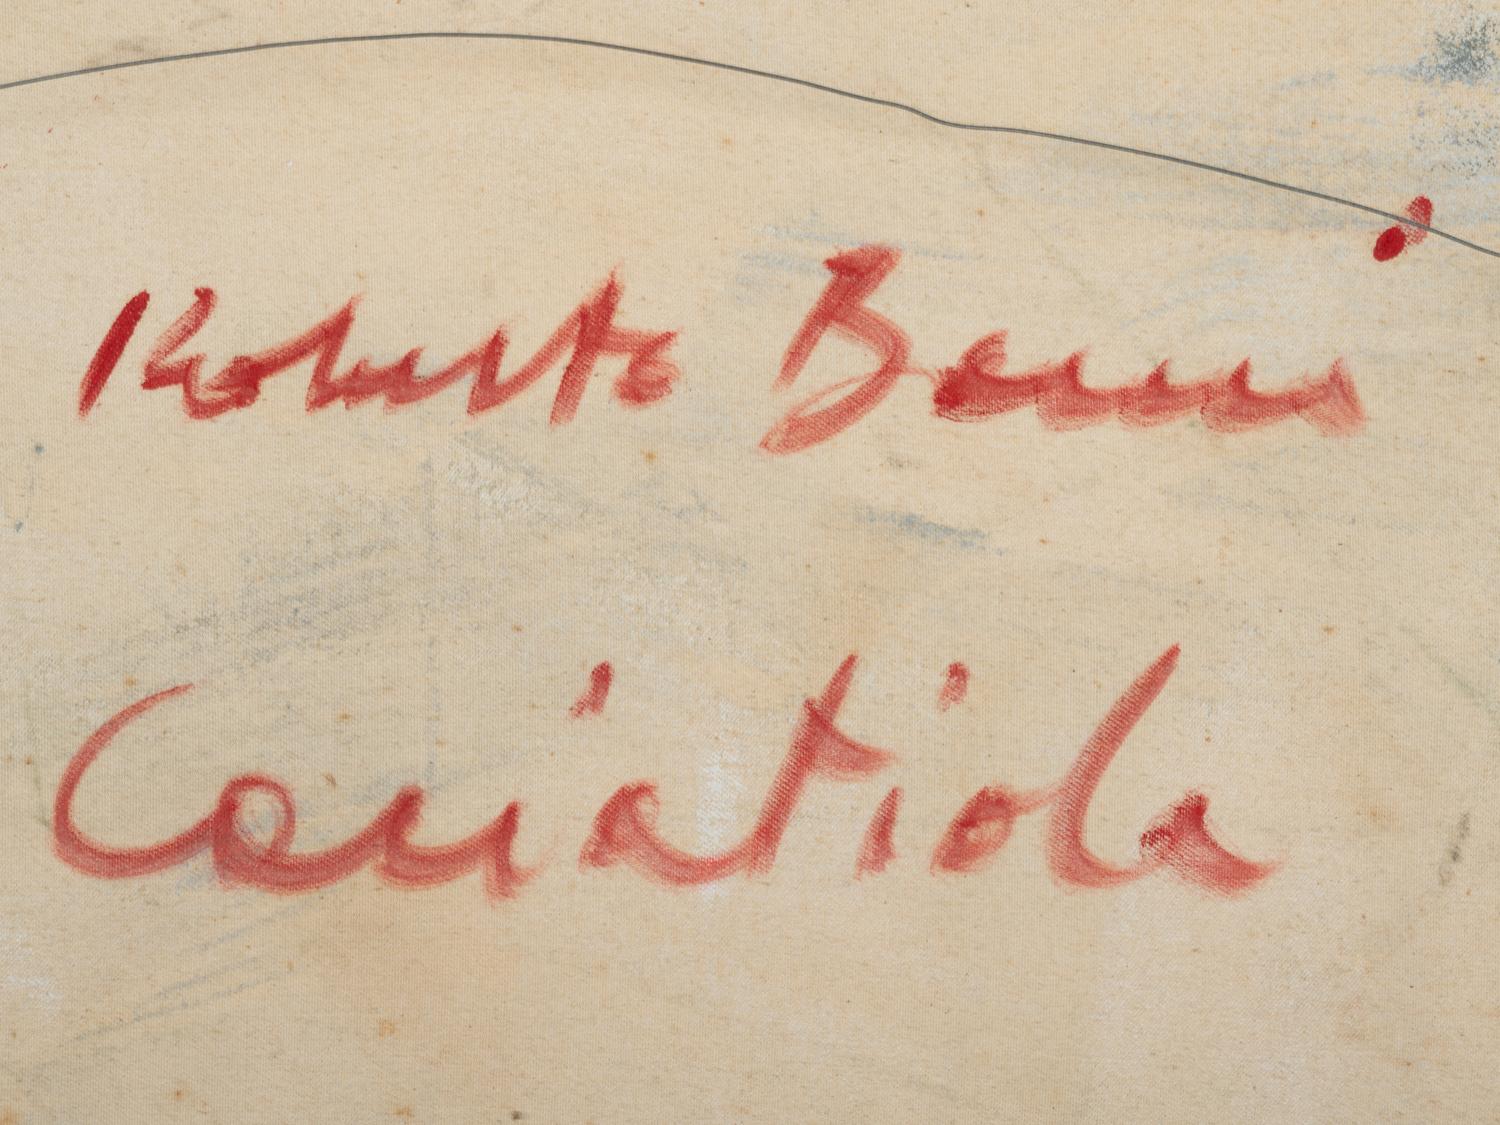 Roberto Berni
Cariatida